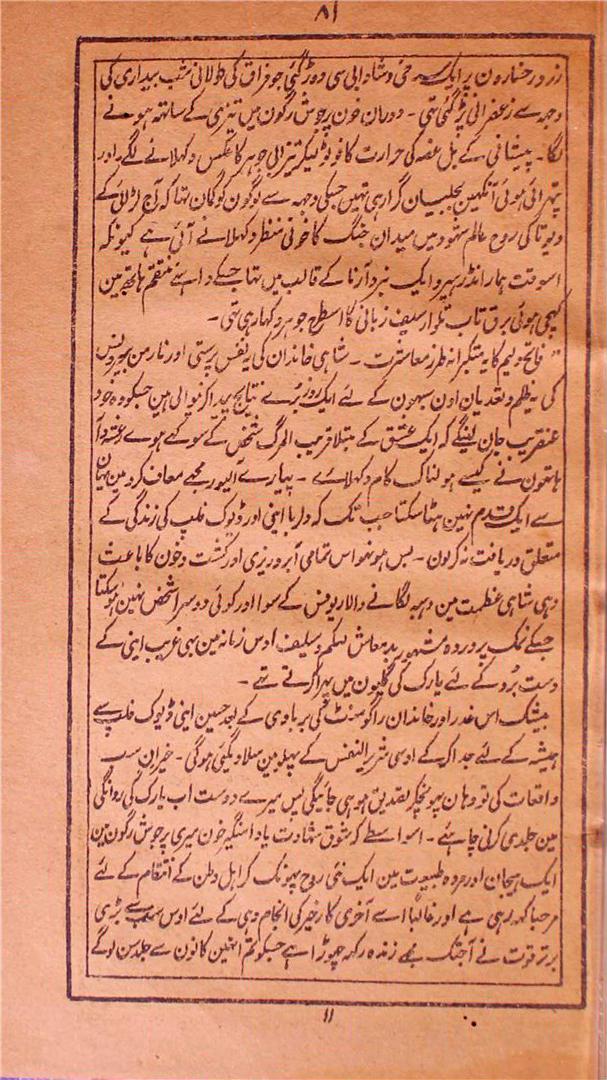 ۸۱
زرد رخسارہ ن پر ایک سرخی و شادابی سی دوڑ گئی جو فراق کی طولانی شب بیداری کی
وجہ سے زعفرانی پڑ گئی تہی ۔ دوران خون پرجوش رگون مین تیزی کے ساتھ ہونے
لگا ۔ پیشانی کے بل غصہ کی حرارت کا فوٹو لیکر تیزابی جوہر کا عکس دکہلانے لگے۔ اور
پتہرائی ہوئی آنکہین بجلییان گرا رہی تہین جسکی وجہہ سے لوگون کو گمان تہا کہ آج لڑائی کے
دیوتا کی روح عالم شہود مین میدان جنگ کا خونی منظر دکہلانے آئی ہے کیونکہ
اسوقت ہمارا نڈر ہیرو ایک نبرد آزما کے قالب مین تہا جسکے داہنے منتقم ہاتھ مین
کہچی ہوئی برق تاب تلوار سیف زبانی کا اسطرح جوہر دکہا رہی تہی ۔
" فاتح ولیم کا یہ متکبرانہ طرز معاشرت ۔ شاہی خاندان کی یہ نفس پرستی اور نارمن بیرونس
کی یہ ظلم و تعدیان اون سبہون کے لئے ایک روز بُرے نتایج پیدا کرنیوالی ہین جسکو وہ خود
عنقریب جان لینگے کہ ایک عشق کے مبتلا قریب المرگ شخص کے سوکہے ہوے رعشہ دار
ہاتہون نے کیسے ہولناک کام دکہلائے ۔ پیارے آلیور مجہے معاف کرو مین یہان
سے ایک قدم نہین ہٹا سکتا جب تک کہ دلربا اینی اور ڈیوک فلپ کی زندگی کے
متعلق دریافت نہ کرلون ۔ بس ہو نہو اس تمامی آبرو ریزی اور کشت و خون کا باعث
وہی شاہی عظمت مین دہبہ لگانے والا ریونس کے سوا اور کوئی دوسرا شخص نہین ہو سکتا
جسکے نمک پروردہ مشہور بدمعاش اوس زمانہ مین بہی غریب اینی کے
دست بُرد کے لئے یارک کی گلیون مین پہرا کرتے تہے ۔
بیشک اس غدر اور خاندان کی بربادی کے بعد حسین اینی ڈیوک فلپ سے
ہمیشہ کے لئے جدا کر کے اوسی شریر النفس کے پہلو مین سلا دیگئی ہوگی ۔ خیر ان سب
واقعات کی تو وہان پہونچکر تصدیق ہو ہی جائیگی بس میرے دوست اب یارک کی روانگی
مین جلدی کرنی چاہئے ۔ اسواسطے کہ شوق شہادت یا دامنگیر خون میری پرجوش رگون مین
ایک ہیجان اور مردہ طبیعت مین ایک نئی روح پہونک کر اہل وطن کے انتقام کے لئے
مرحبا کہہ رہی ہے اور غالباً اسے آخری کار خیر کی انجام دہی کے لئے اوس سب سے بڑی
برتر قوت نے آجتک مجہے زندہ رکہہ چہوڑا ہے جسکو تم انہین کانون سے جلد سن لوگے
۱۱